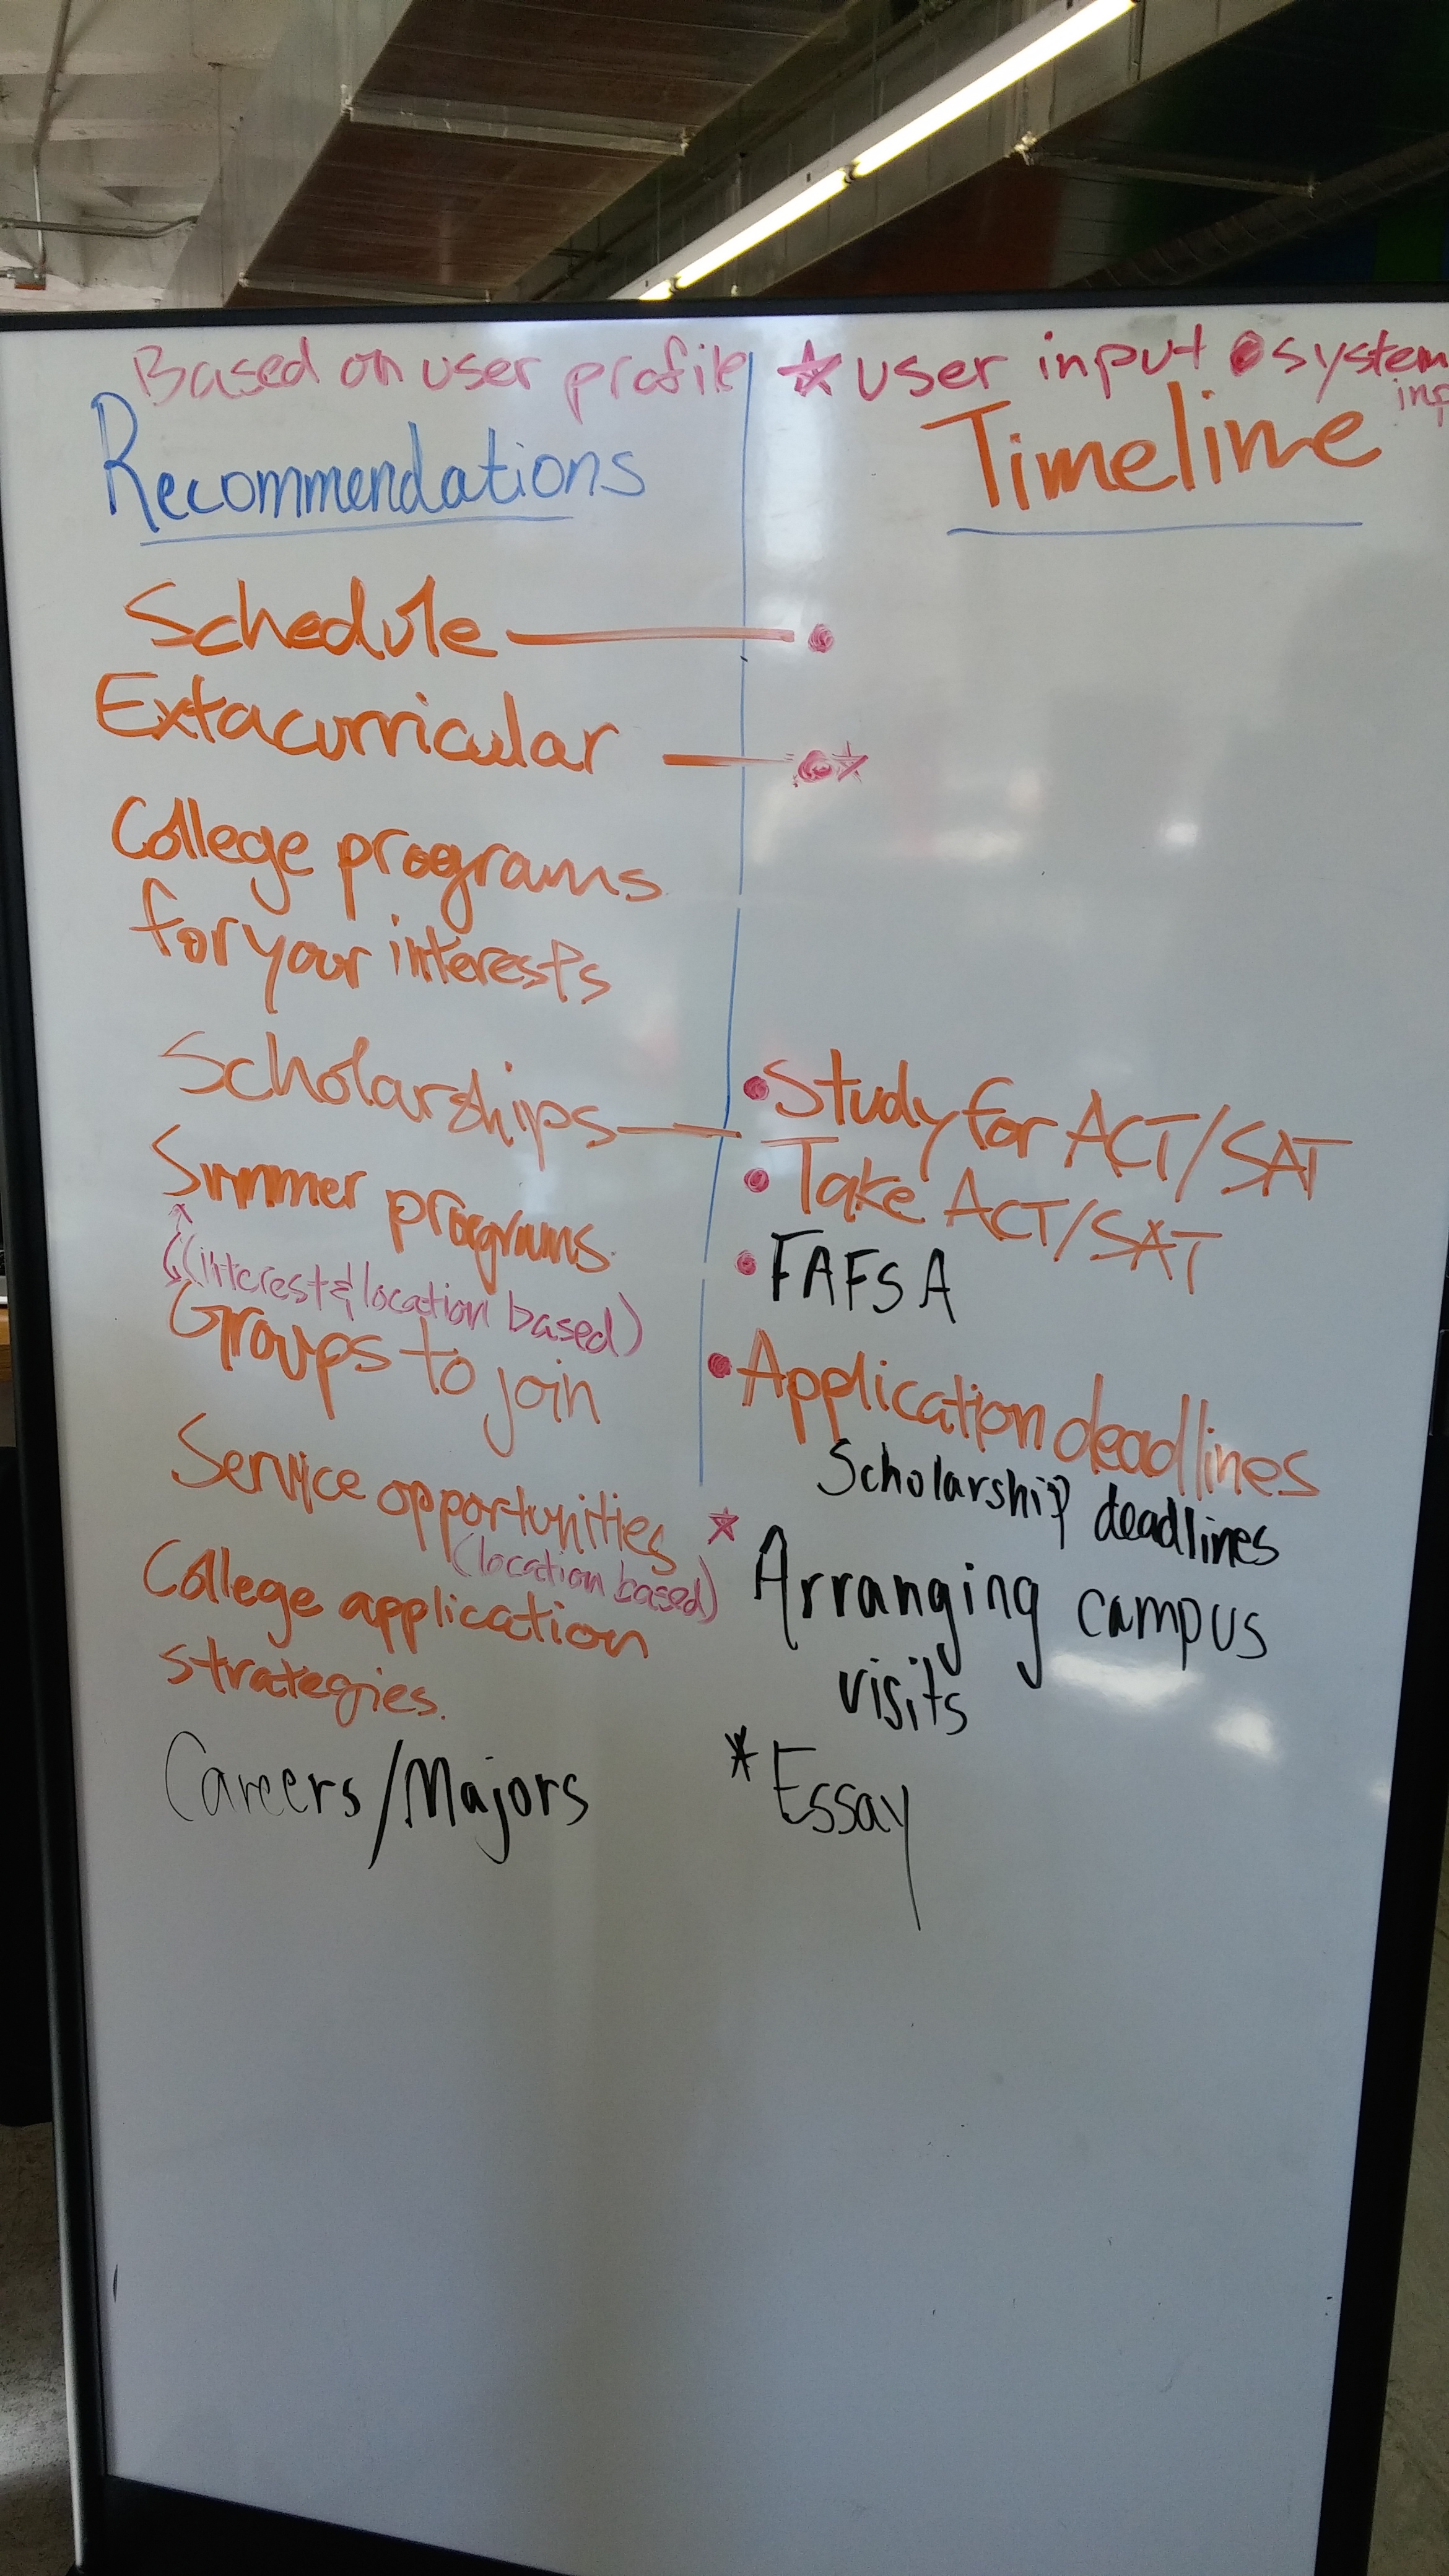 Based on user profile
Recommendations
Schedule
Extacurricular
College programs
for your interests
Scholarships
Summer programs
(interest & location based)
Groups to join
Service opportunities
(location based)
College application
strategies.
Careers/Majors
☆ user input ● system
Timeline
• Study for ACT/SAT
• Take ACT/SAT
• FAFSA
• Application deadlines
Scholarship deadlines
☆ Arranging campus
visits
* Essay